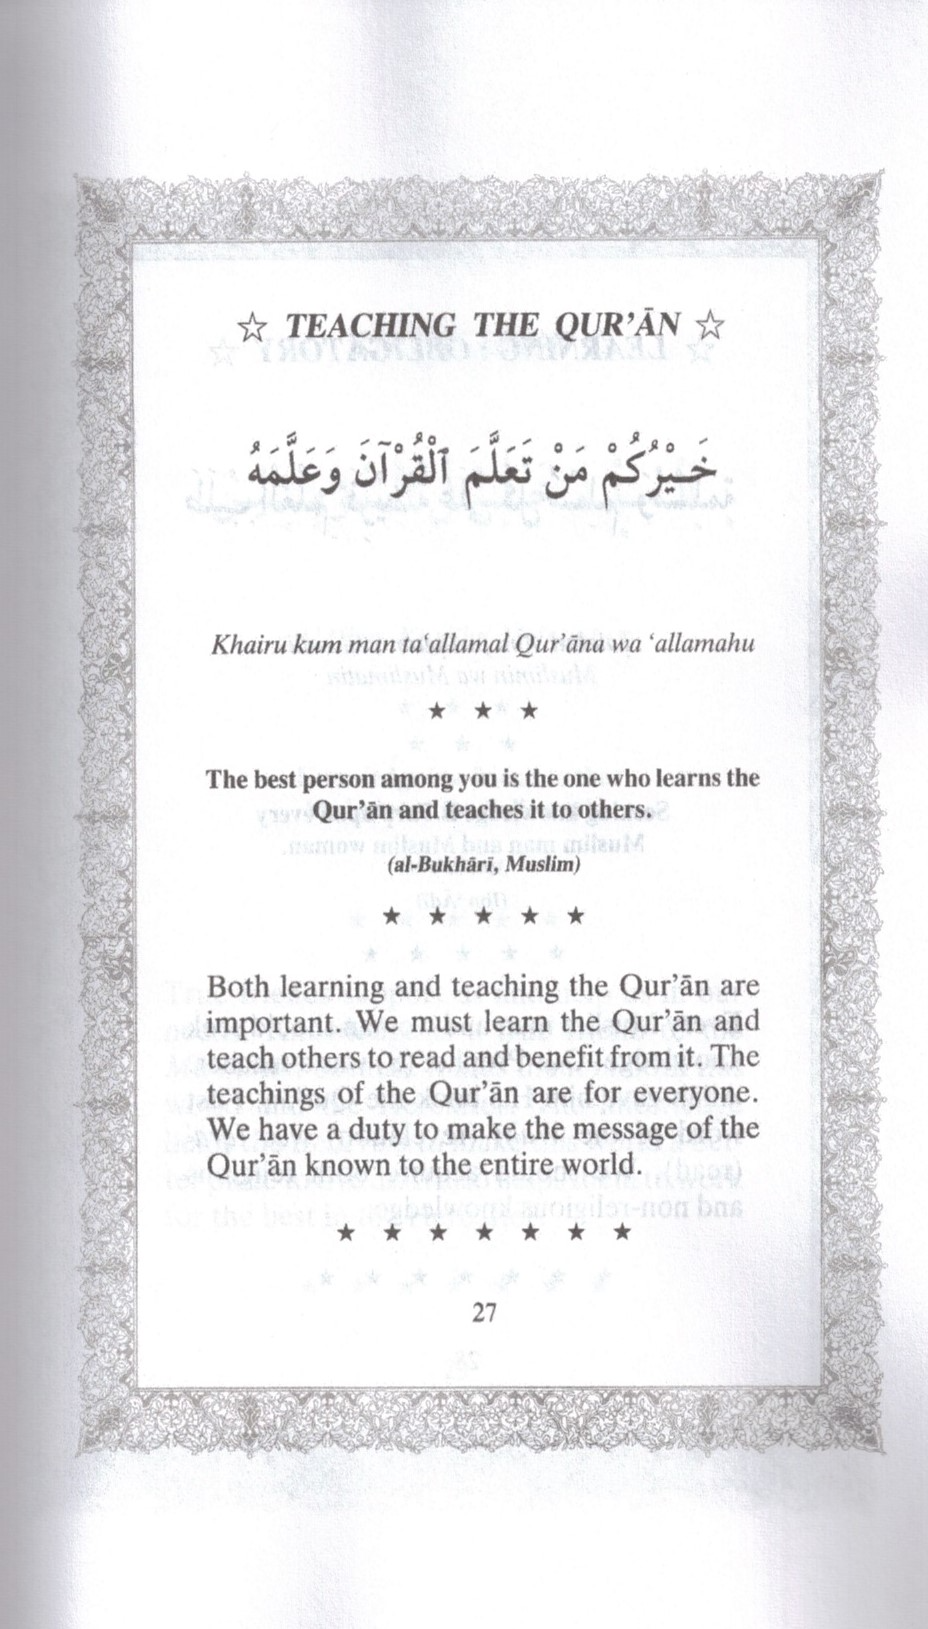 ☆ TEACHING THE QUR’ĀN ☆
خَيْرُكُمْ مَنْ تَعَلَّمَ ٱلْقُرْآنَ وَعَلَّمَهُ
Khairu kum man ta‘allamal Qur’āna wa ‘allamahu
★ ★ ★
The best person among you is the one who learns the
Qur’ān and teaches it to others.
(al-Bukhārī, Muslim)
★ ★ ★ ★ ★
Both learning and teaching the Qur’ān are
important. We must learn the Qur’ān and
teach others to read and benefit from it. The
teachings of the Qur’ān are for everyone.
We have a duty to make the message of the
Qur’ān known to the entire world.
★ ★ ★ ★ ★ ★ ★
27